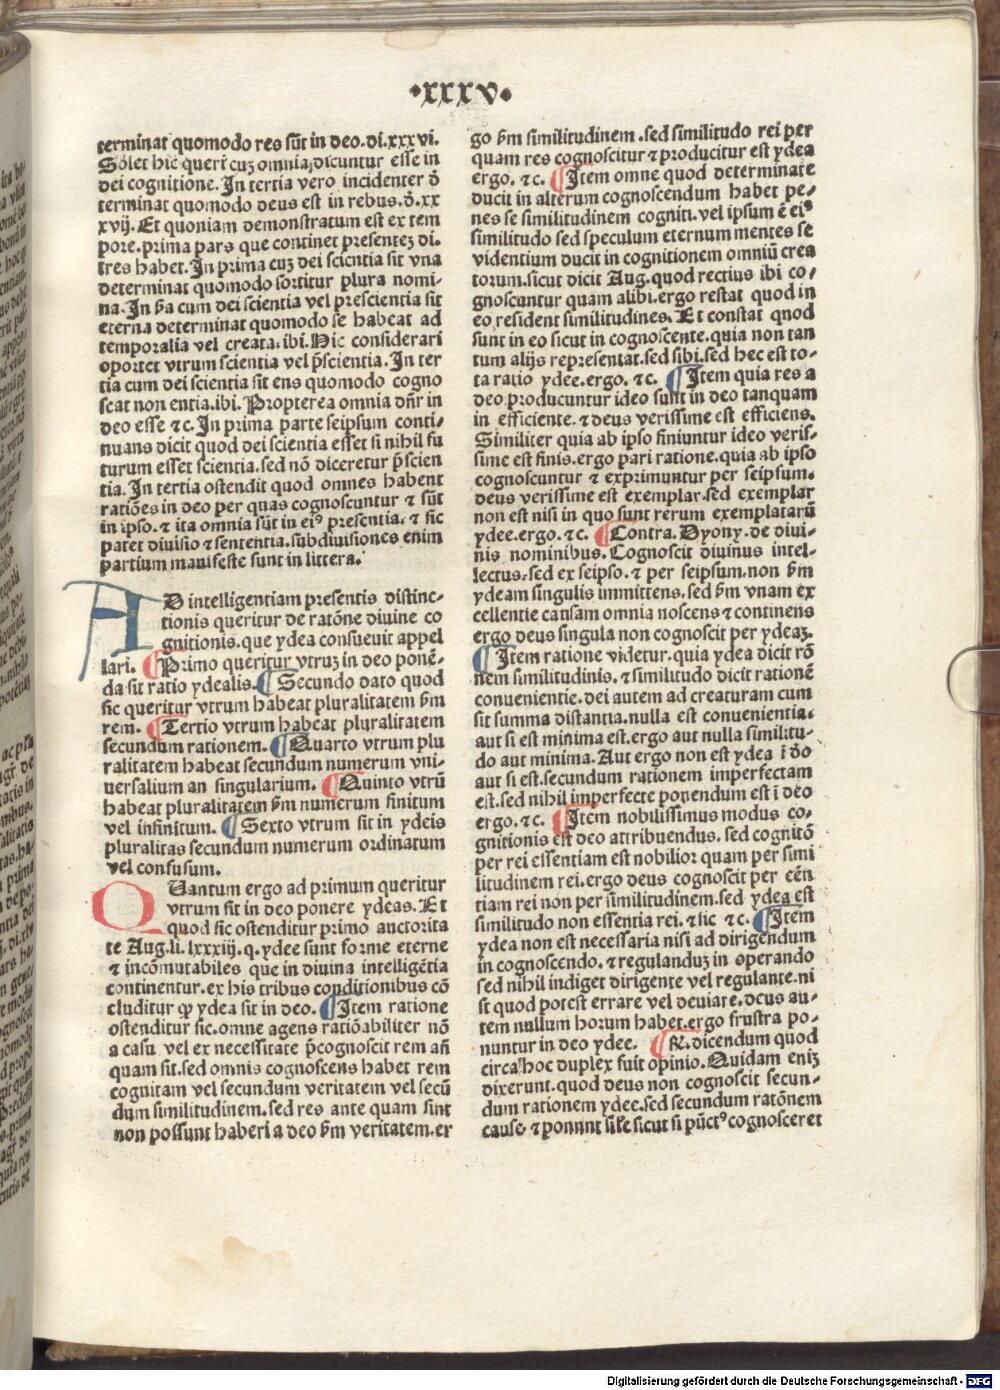 ·xxxv·
terminat quomodo res sūt in deo.di.xxxvi.
Solet hic queri cuʒ omnia;dicuntur esse in
dei cognitione. In tertia vero incidenter d̄
terminat quomodo deus est in rebus.d̄.xx
xvij. Et quoniam demonstratum est ex tem
pore.prima pars que continet presenteʒ di.
tres habet. In prima cuʒ dei scientia sit vna
determinat quomodo sortitur plura nomi-
na. In ẜa cum dei scientia vel prescientia sit
eterna determinat quomodo se habeat ad
temporalia vel creata.ibi. Hic considerari
oportet vtrum scientia vel p̄scientia. In ter
tia cum dei scientia sit ens quomodo cogno
scat non entia.ibi. Propterea omnia dn̄r in
deo esse ⁊c. In prima parte seipsum conti-
nuans dicit quod dei scientia esset si nihil fu
turum esset scientia.sed nō diceretur p̄scien
tia. In tertia ostendit quod omnes habent
ratiōes in deo per quas cognoscuntur ⁊ sūt
in ipso. ⁊ ita omnia sūt in eiꝰ presentia. ⁊ sic
patet diuisio ⁊ sententia.subdiuisiones enim
partium manifeste sunt in littera.
AD intelligentiam presentis distinc-
tionis queritur de ratōne diuine co
gnitionis.que ydea consueuit appel
lari. ¶Primo queritur vtruʒ in deo ponē-
da sit ratio ydealis. ¶Secundo dato quod
sic queritur vtrum habeat pluralitatem ẜm
rem. ¶Tertio vtrum habeat pluralitatem
secundum rationem. ¶Quarto vtrum plu
ralitatem habeat secundum numerum vni-
uersalium an singularium. ¶Quinto vtrū
habeat pluralitatem ẜm numerum finitum
vel infinitum. ¶Sexto vtrum sit in ydeis
pluralitas secundum numerum ordinatum
vel confusum.
QUantum ergo ad primum queritur
vtrum sit in deo ponere ydeas. Et
quod sic ostenditur primo auctorita
te Aug.li.lxxxiij.q.ydee sunt forme eterne
⁊ incōmutabiles que in diuina intelligētia
continentur.ex his tribus conditionibus cō
cluditur ꝙ ydea sit in deo. ¶Item ratione
ostenditur sic.omne agens ratiōabiliter nō
a casu vel ex necessitate p̄cognoscit rem añ
quam sit.sed omnis cognoscens habet rem
cognitam vel secundum veritatem vel secū
dum similitudinem.sed res ante quam sint
non possunt haberi a deo ẜm veritatem.er
go ẜm similitudinem.sed similitudo rei per
quam res cognoscitur ⁊ producitur est ydea
ergo. ⁊c. ¶Item omne quod determinate
ducit in alterum cognoscendum habet pe-
nes se similitudinem cogniti.vel ipsum ē eiꝰ
similitudo sed speculum eternum mentes se
videntium ducit in cognitionem omniū crea
torum.sicut dicit Aug.quod rectius ibi co-
gnoscuntur quam alibi.ergo restat quod in
eo resident similitudines. Et constat qnod
sunt in eo sicut in cognoscente.quia non tan
tum alijs representat.sed sibi.sed hec est to-
ta ratio ydee.ergo. ⁊c. ¶Item quia res a
deo producuntur ideo sunt in deo tanquam
in efficiente. ⁊ deus verissime est efficiens.
Similiter quia ab ipso finiuntur ideo veris-
sime est finis.ergo pari ratione.quia ab ipso
cognoscuntur ⁊ exprimuntur per seipsum.
deus verissime est exemplar.sed exemplar
non est nisi in quo sunt rerum exemplatarū
ydee.ergo. ⁊c. ¶Contra. Dyony.de diui-
nis nominibus. Cognoscit diuinus intel-
lectus.sed ex seipso. ⁊ per seipsum.non ẜm
ydeam singulis immittens.sed ẜm vnam ex
cellentie causam omnia noscens ⁊ continens
ergo deus singula non cognoscit per ydeaʒ.
¶Item ratione videtur.quia ydea dicit rō
nem similitudinis. ⁊ similitudo dicit rationē
conuenientie.dei autem ad creaturam cum
sit summa distantia.nulla est conuenientia.
aut si est minima est.ergo aut nulla similitu-
do aut minima. Aut ergo non est ydea ī do
aut si est.secundum rationem imperfectam
est.sed nihil imperfecte ponendum est ī deo
ergo. ⁊c. ¶Item nobilissimus modus co-
gnitionis est deo attribuendus.sed cognitō
per rei essentiam est nobilior quam per simi
litudinem rei.ergo deus cognoscit per eēn
tiam rei non per similitudinem.sed ydea est
similitudo non essentia rei. ⁊ sic ⁊c. ¶Item
ydea non est necessaria nisi ad dirigendum
in cognoscendo. ⁊ regulanduʒ in operando
sed nihil indiget dirigente vel regulante.ni
si quod potest errare vel deuiare.deus au-
tem nullum horum habet.ergo frustra po-
nuntur in deo ydee. ¶℞.dicendum quod
circa hoc duplex fuit opinio. Quidam eniʒ
dixerunt.quod deus non cognoscit secun-
dum rationem ydee.sed secundum ratōnem
cause ⁊ ponunt sil̄e sicut si pūctꝰ cognosceret
Digitalisierung gefördert durch die Deutsche Forschungsgemeinschaft - DFG